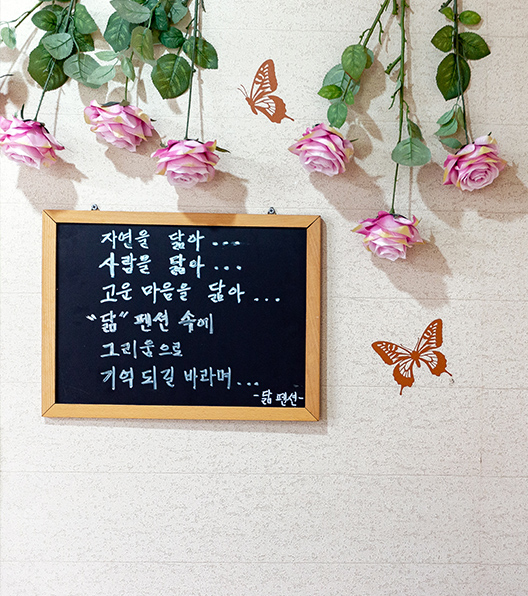 자연을 닮아...
사람을 닮아...
고운 마음을 닮아...
"닮" 펜션 속에
그리움으로
기억 되길 바라며...
-닮 펜션-